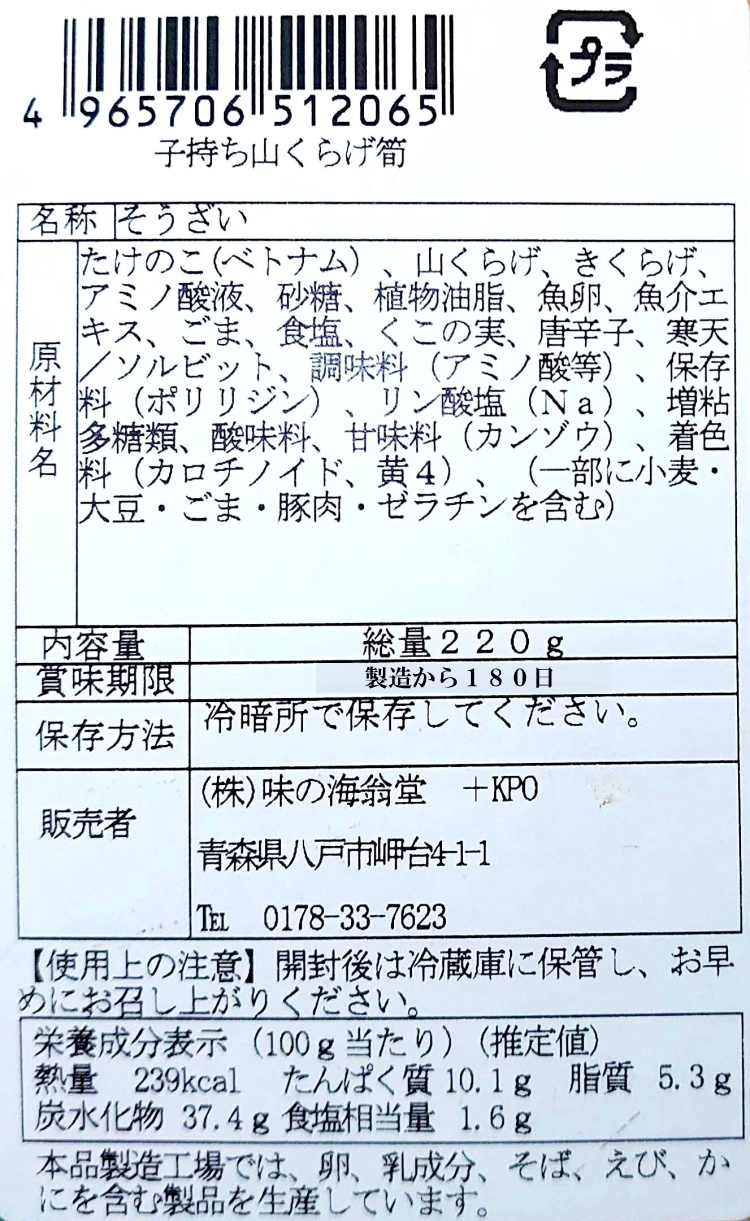 プラ
4 965706 512065
子持ち山くらげ筍
名称 そうざい
原材料名
たけのこ(ベトナム)、山くらげ、きくらげ、
アミノ酸液、砂糖、植物油脂、魚卵、魚介エ
キス、ごま、食塩、くこの実、唐辛子、寒天
／ソルビット、調味料（アミノ酸等）、保存
料（ポリリジン）、リン酸塩（Ｎａ）、増粘
多糖類、酸味料、甘味料（カンゾウ）、着色
料（カロチノイド、黄４）、（一部に小麦・
大豆・ごま・豚肉・ゼラチンを含む）
内容量 総量２２０ｇ
賞味期限 製造から１８０日
保存方法 冷暗所で保存してください。
販売者 (株)味の海翁堂 +KPO
青森県八戸市岬台4-1-1
℡ 0178-33-7623
【使用上の注意】開封後は冷蔵庫に保管し、お早
めにお召し上がりください。
栄養成分表示（100ｇ当たり）（推定値）
熱量 239kcal たんぱく質 10.1ｇ 脂質 5.3ｇ
炭水化物 37.4ｇ 食塩相当量 1.6ｇ
本品製造工場では、卵、乳成分、そば、えび、か
にを含む製品を生産しています。